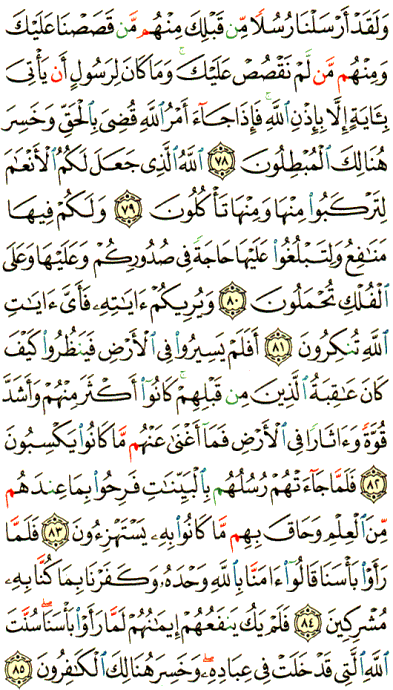 وَلَقَدْ أَرْسَلْنَا رُسُلًا مِّن قَبْلِكَ مِنْهُم مَّن قَصَصْنَا عَلَيْكَ
وَمِنْهُم مَّن لَّمْ نَقْصُصْ عَلَيْكَ ۗ وَمَا كَانَ لِرَسُولٍ أَن يَأْتِىَ
بِـَٔايَةٍ إِلَّا بِإِذْنِ ٱللَّهِ ۚ فَإِذَا جَآءَ أَمْرُ ٱللَّهِ قُضِىَ بِٱلْحَقِّ وَخَسِرَ
هُنَالِكَ ٱلْمُبْطِلُونَ ٧٨ ٱللَّهُ ٱلَّذِى جَعَلَ لَكُمُ ٱلْأَنْعَـٰمَ
لِتَرْكَبُوا۟ مِنْهَا وَمِنْهَا تَأْكُلُونَ ٧٩ وَلَكُمْ فِيهَا
مَنَـٰفِعُ وَلِتَبْلُغُوا۟ عَلَيْهَا حَاجَةً فِى صُدُورِكُمْ وَعَلَيْهَا وَعَلَى
ٱلْفُلْكِ تُحْمَلُونَ ٨٠ وَيُرِيكُمْ ءَايَـٰتِهِۦ فَأَىَّ ءَايَـٰتِ
ٱللَّهِ تُنكِرُونَ ٨١ أَفَلَمْ يَسِيرُوا۟ فِى ٱلْأَرْضِ فَيَنظُرُوا۟ كَيْفَ
كَانَ عَـٰقِبَةُ ٱلَّذِينَ مِن قَبْلِهِمْ ۚ كَانُوٓا۟ أَكْثَرَ مِنْهُمْ وَأَشَدَّ
قُوَّةً وَءَاثَارًا فِى ٱلْأَرْضِ فَمَآ أَغْنَىٰ عَنْهُم مَّا كَانُوا۟ يَكْسِبُونَ
٨٢ فَلَمَّا جَآءَتْهُمْ رُسُلُهُم بِٱلْبَيِّنَـٰتِ فَرِحُوا۟ بِمَا عِندَهُم
مِّنَ ٱلْعِلْمِ وَحَاقَ بِهِم مَّا كَانُوا۟ بِهِۦ يَسْتَهْزِءُونَ ٨٣ فَلَمَّا
رَأَوْا۟ بَأْسَنَا قَالُوٓا۟ ءَامَنَّا بِٱللَّهِ وَحْدَهُۥ وَكَفَرْنَا بِمَا كُنَّا بِهِۦ
مُشْرِكِينَ ٨٤ فَلَمْ يَكُ يَنفَعُهُمْ إِيمَـٰنُهُمْ لَمَّا رَأَوْا۟ بَأْسَنَا ۖ سُنَّتَ
ٱللَّهِ ٱلَّتِى قَدْ خَلَتْ فِى عِبَادِهِۦ ۖ وَخَسِرَ هُنَالِكَ ٱلْكَـٰفِرُونَ ٨٥